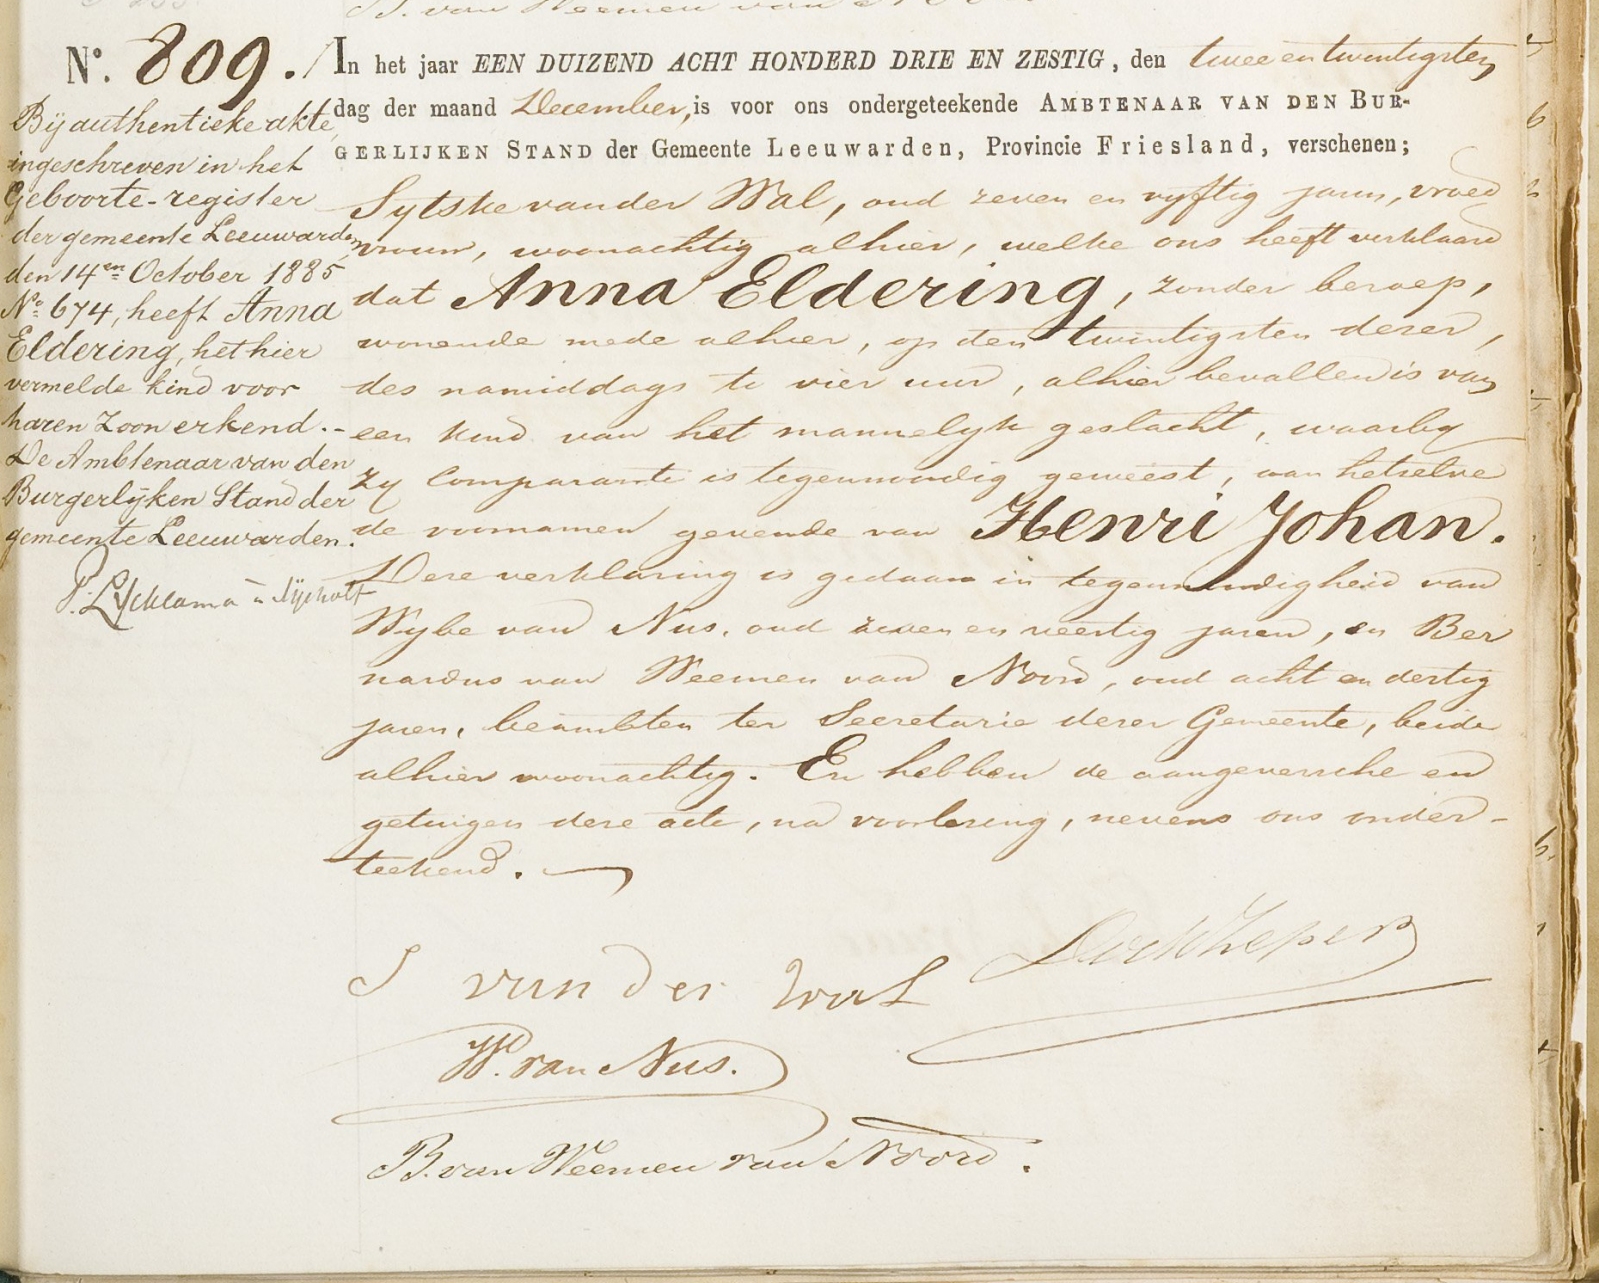 No. 809.
In het jaar EEN DUIZEND ACHT HONDERD DRIE EN ZESTIG, den twee en twintigsten
dag der maand December, is voor ons ondergeteekende AMBTENAAR VAN DEN BUR-
GERLIJKEN STAND der Gemeente Leeuwarden, Provincie Friesland, verschenen;
Sytske van der Wal, oud zeven en vyftig jaren, vroed
vrouw, woonachtig alhier, welke ons heeft verklaard
dat Anna Eldering, zonder beroep,
wonende mede alhier, op den twintigsten dezer,
des namiddags te vier uur, alhier bevallen is van
een kind van het mannelyk geslacht, waarby
zy Comparante is tegenwoordig geweest, aan hetzelve
de voornamen gevende van Henri Johan.
Deze verklaring is gedaan in tegenwoordigheid van
Wybe van Nus, oud zeven en veertig jaren, en Ber
nardus van Weemen van Noord, oud acht en dertig
jaren, beambten ter Secretarie dezer Gemeente, beide
alhier woonachtig. En hebben de aangeversche en
getuigen deze acte, na voorlezing, nevens ons onder-
teekend.
Bij authentieke akte,
ingeschreven in het
Geboorte-register
der gemeente Leeuwarden,
den 14en October 1885
No 674, heeft Anna
Eldering, het hier
vermelde kind voor
haren zoon erkend.-
De Ambtenaar van den
Burgerlijken Stand der
gemeente Leeuwarden.
P. Lycklama à Nijeholt
S van der Wal
W. van Nus.
B. van Weemen van Noord.